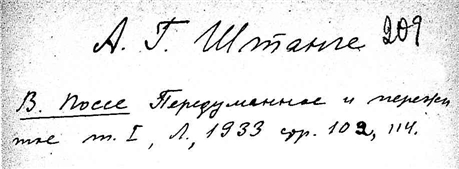 А. Г. Штанге 209
В. Поссе Передуманное и пережи
тое т. I, Л., 1933 стр. 102, 114.